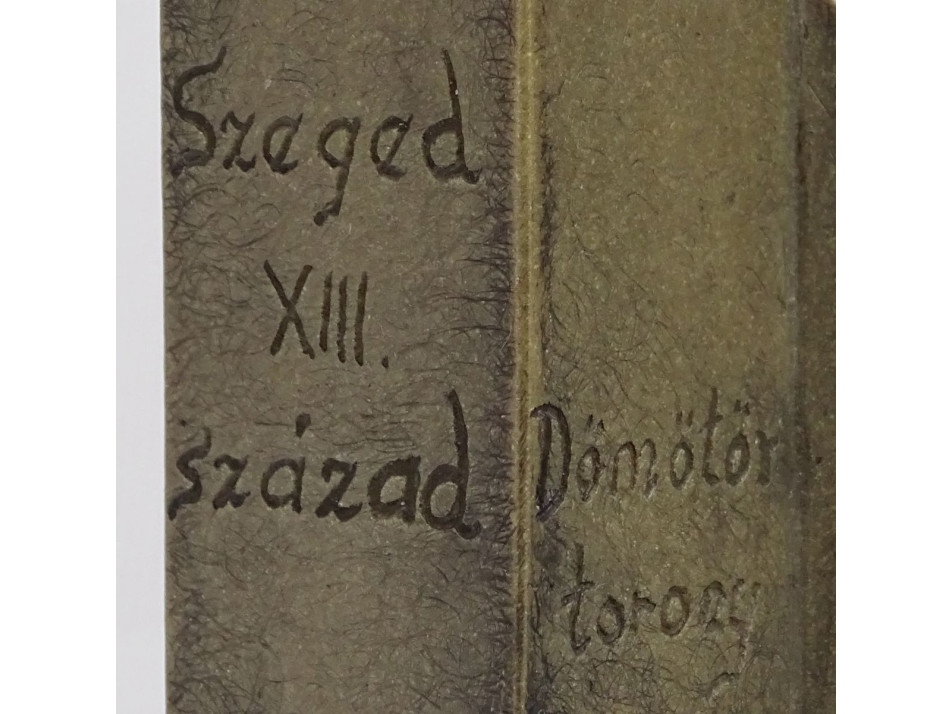 Szeged
XIII.
század
Dömötör
torony